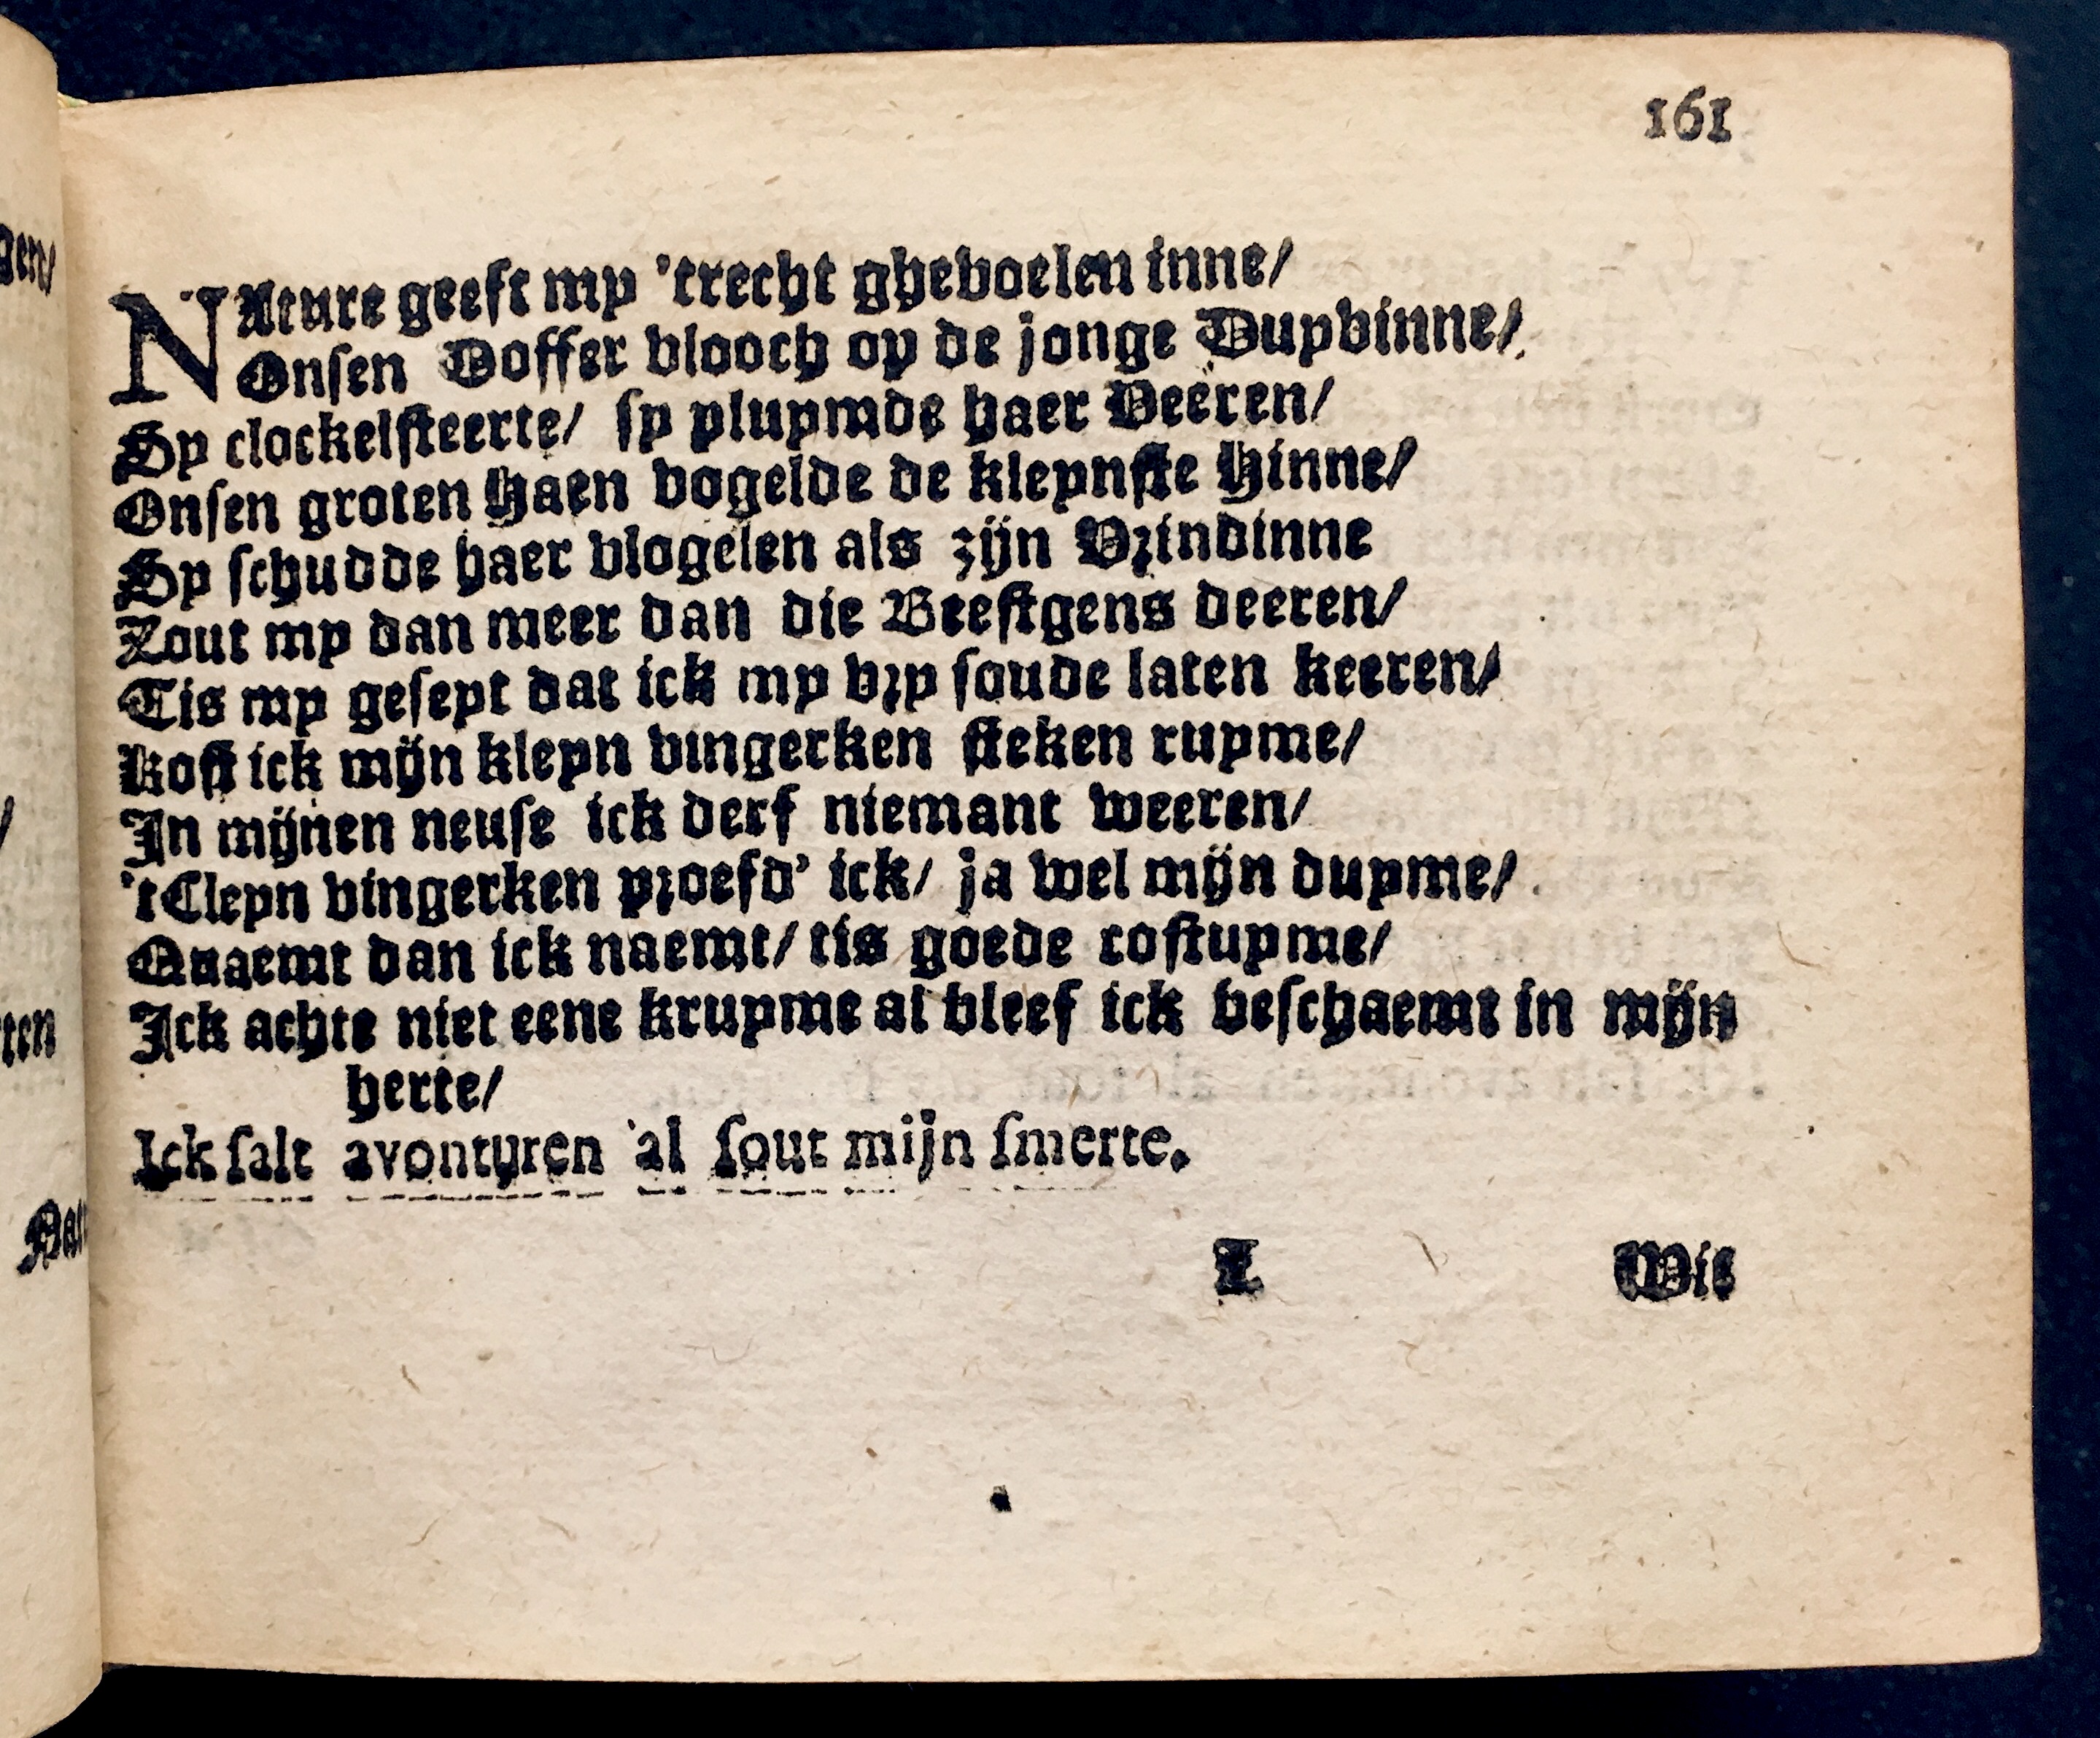 161
gen/
NAture geeft my 'trecht ghevoelen inne/
Onsen Doffer vlooch op de jonge Duyvinne/
Sy clockelsteerte/ sy pluymde haer Veeren/
Onsen groten Haen vogelde de kleynste Hinne/
Sy schudde haer vlogelen als zijn Vrindinne
Zout my dan meer dan die Beestgens deeren/
Tis my geseyt dat ick my vry soude laten keeren/
Kost ick mijn kleyn vingerken steken ruyme/
In mijnen neuse ick derf niemant weeren/
'tCleyn vingerken proefd' ick/ ja wel mijn duyme/
Quaemt dan ick naemt/ tis goede costuyme/
Ick achte niet eene kruyme al bleef ick beschaemt in mijn
herte/
Ick salt avonturen al sout mijn smerte.
ten
L Wit